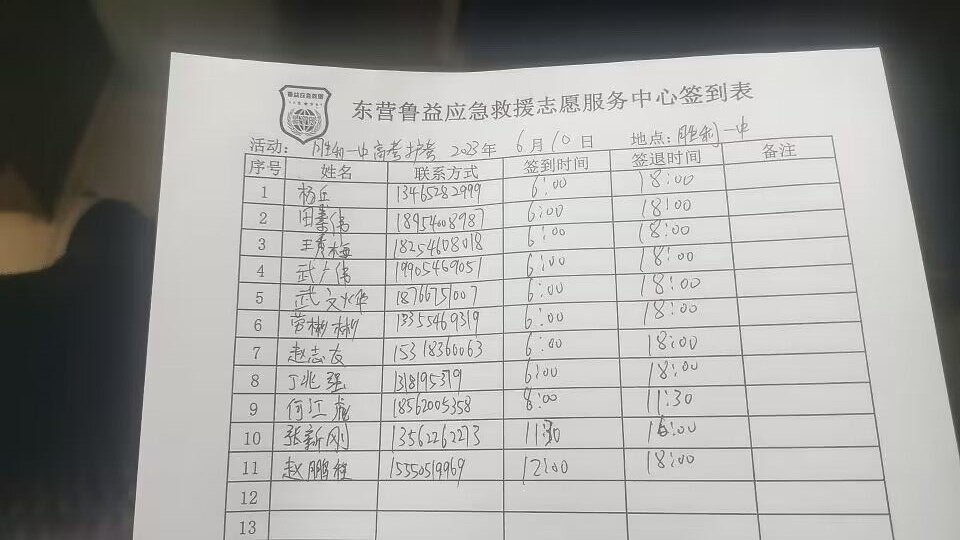 鲁益应急救援
东营鲁益应急救援志愿服务中心签到表
活动: 胜利一中高考护考 2023年 6月10日 地点: 胜利一中
序号 姓名 联系方式 签到时间 签退时间 备注
1 杨丘 13465282999 6:00 18:00
2 田素伟 18954008987 6:00 18:00
3 王秀梅 18254608018 6:00 18:00
4 武广伟 19905469051 6:00 18:00
5 武文华 18766751007 6:00 18:00
6 常彬彬 13355469319 6:00 18:00
7 赵志友 15318360063 6:00 18:00
8 丁兆强 1318195379 6:00 18:00
9 何江彪 18562005358 8:00 11:30
10 张新刚 13562262273 11:30 16:00
11 赵鹏程 15550519969 12:00 18:00
12
13